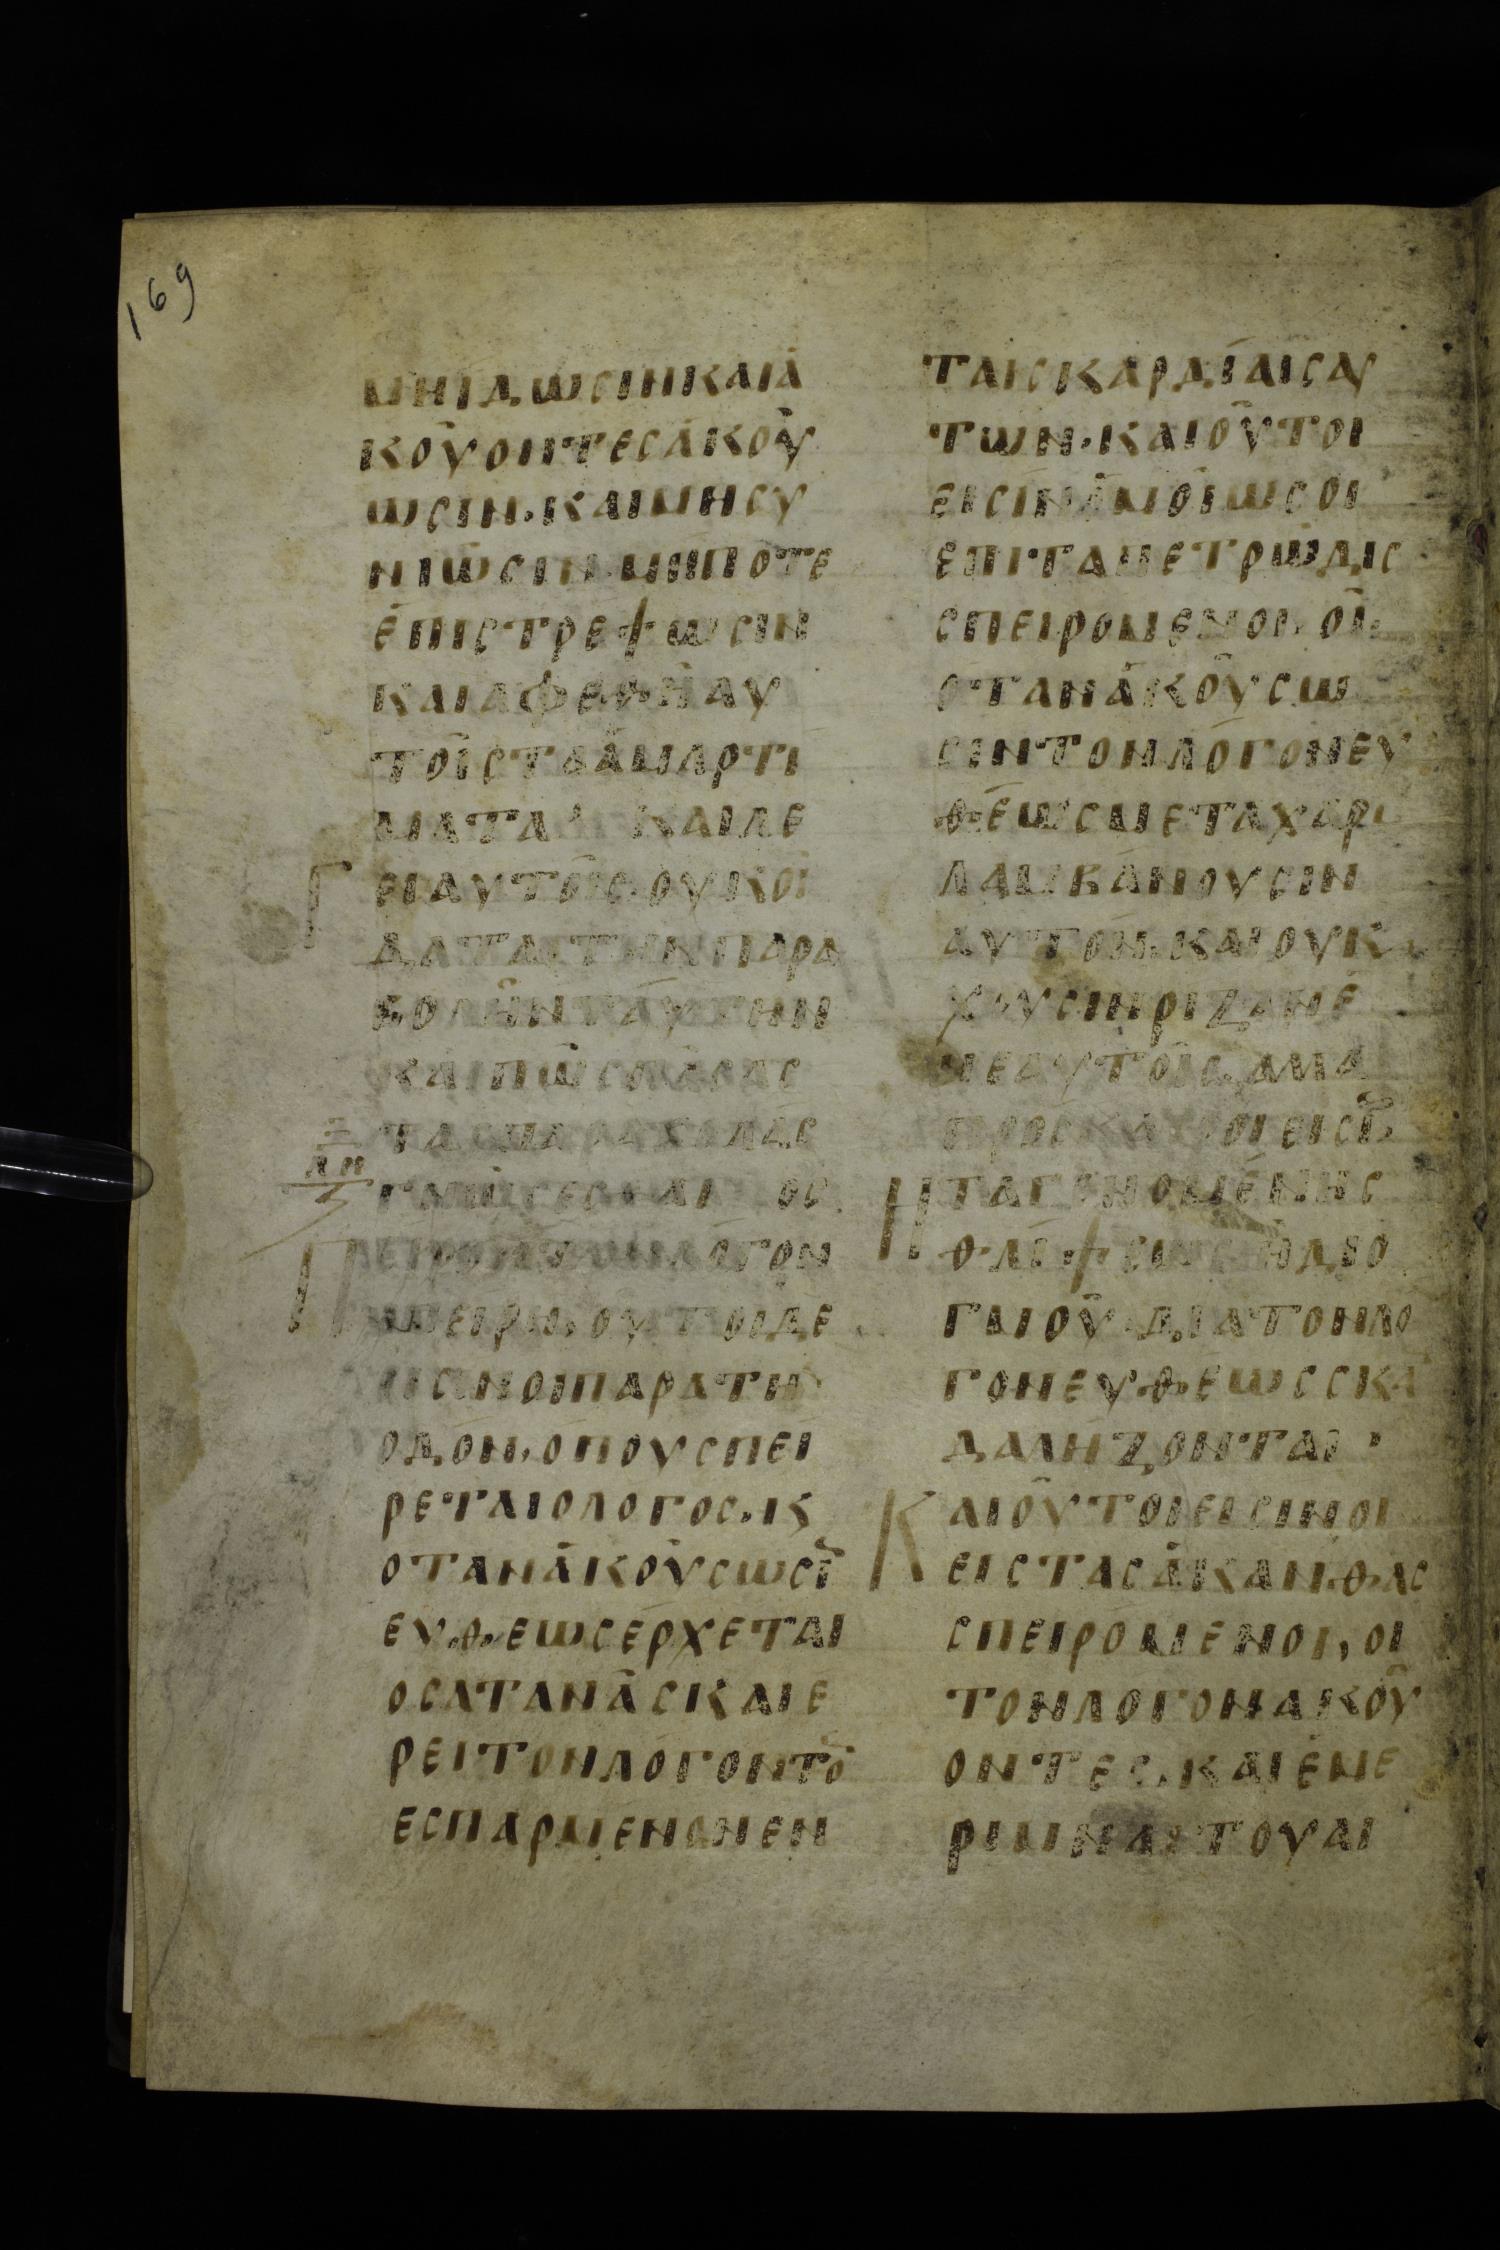 169
ΜΗΙΔΩΣΙΝΚΑΙΑ
ΚΟΥΟΝΤΕΣΑΚΟΥ
ΩΣΙΝ·ΚΑΙΜΗΣΥ
ΝΙΩΣΙΝ·ΜΗΠΟΤΕ
ΕΠΙΣΤΡΕΨΩΣΙΝ
ΚΑΙΑΦΕΘΗΑΥ
ΤΟΙΣΤΑΑΜΑΡΤΙ
ΜΑΤΑ· ΚΑΙΛΕ
ΓΕΙΑΥΤΟΙΣ·ΟΥΚΟΙ
ΔΑΤΑΙΤΗΝΠΑΡΑ
ΒΟΛΗΝΤΑΥΤΗΝ
ΚΑΙΠΩΣΠΑΣΑΣ
ΤΑΣΠΑΡΑΒΟΛΑΣ
ΛΗ
ΓΝΩΣΕΣΘΑΙ ΟΣ
ΠΕΙΡΩΝΤΟΝΛΟΓΟΝ
ΣΠΕΙΡΕΙ·ΟΥΤΟΙΔΕ
ΕΙΣΙΝΟΙΠΑΡΑΤΗΝ
ΟΔΟΝ·ΟΠΟΥΣΠΕΙ
ΡΕΤΑΙΟΛΟΓΟΣ·Κ
ΟΤΑΝΑΚΟΥΣΩΣΙ
ΕΥΘΕΩΣΕΡΧΕΤΑΙ
ΟΣΑΤΑΝΑΣΚΑΙΕ
ΡΕΙΤΟΝΛΟΓΟΝΤΟ
ΕΣΠΑΡΜΕΝΟΝΕΝ
ΤΑΙΣΚΑΡΔΙΑΙΣΑΥ
ΤΩΝ·ΚΑΙΟΥΤΟΙ
ΕΙΣΙΝΟΜΟΙΩΣΟΙ
ΕΠΙΤΑΠΕΤΡΩΔΙΣ
ΣΠΕΙΡΟΜΕΝΟΙ·ΟΙ·
ΟΤΑΝΑΚΟΥΣΩ
ΣΙΝΤΟΝΛΟΓΟΝΕΥ
ΘΕΩΣΜΕΤΑΧΑΡΙ
ΛΑΜΒΑΝΟΥΣΙΝ
ΑΥΤΟΝ·ΚΑΙΟΥΚ
ΧΟΥΣΙΝΡΙΖΑΝΕ
ΝΕΑΥΤΟΙΣ·ΑΜΑ
ΠΡΟΣΚΑΙΡΟΙΕΙΣΙ·
ΗΤΑΓΕΝΟΜΕΝΗΣ
ΘΛΙΨΕΩΣΗΔΙΟ
ΓΜΟΥ·ΔΙΑΤΟΝΛΟ
ΓΟΝΕΥΘΕΩΣΣΚΑ
ΔΑΛΗΖΟΝΤΑΙ·
ΚΑΙΟΥΤΟΙΕΙΣΙΝΟΙ
ΕΙΣΤΑΣΑΚΑΝΘΑΣ
ΣΠΕΙΡΟΜΕΝΟΙ,ΟΙ
ΤΟΝΛΟΓΟΝΑΚΟΥ
ΟΝΤΕΣ·ΚΑΙΕΜΕ
ΡΙΜΝΑΙΤΟΥΑΙ